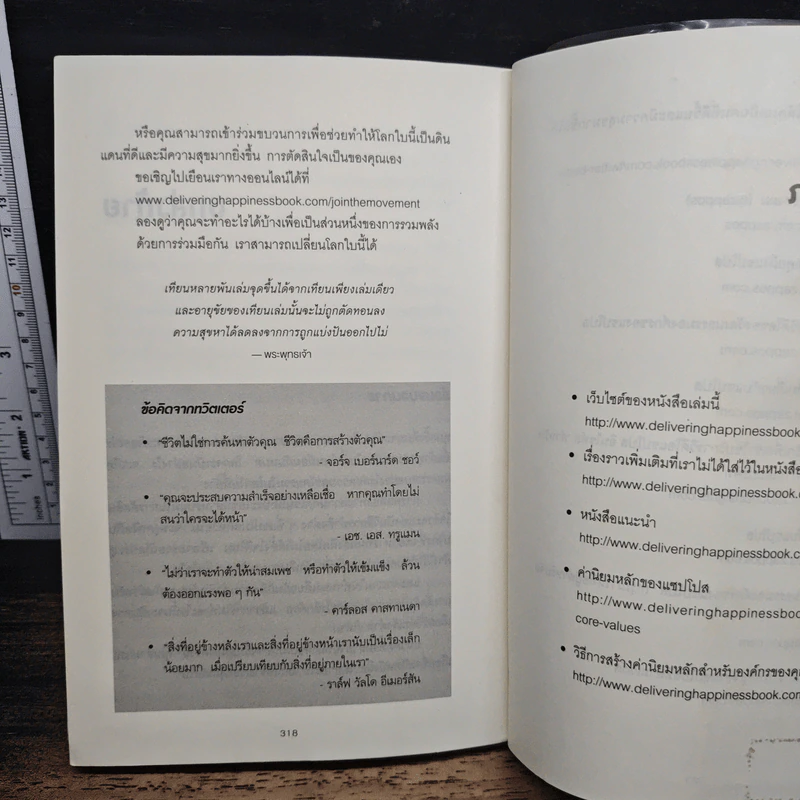 หรือคุณสามารถเข้าร่วมขบวนการเพื่อช่วยทำให้โลกใบนี้เป็นดิน
แดนที่ดีและมีความสุขมากยิ่งขึ้น การตัดสินใจเป็นของคุณเอง
ขอเชิญไปเยือนเราทางออนไลน์ได้ที่
www.deliveringhappinessbook.com/jointhemovement
ลองดูว่าคุณจะทำอะไรได้บ้างเพื่อเป็นส่วนหนึ่งของการรวมพลัง
ด้วยการร่วมมือกัน เราสามารถเปลี่ยนโลกใบนี้ได้
เทียนหลายพันเล่มจุดขึ้นได้จากเทียนเพียงเล่มเดียว
และอายุขัยของเทียนเล่มนั้นจะไม่ถูกตัดทอนลง
ความสุขหาได้ลดลงจากการถูกแบ่งปันออกไปไม่
— พระพุทธเจ้า
ข้อคิดจากทวิตเตอร์
• "ชีวิตไม่ใช่การค้นหาตัวคุณ ชีวิตคือการสร้างตัวคุณ"
- จอร์จ เบอร์นาร์ด ชอว์
• "คุณจะประสบความสำเร็จอย่างเหลือเชื่อ หากคุณทำโดยไม่
สนว่าใครจะได้หน้า"
- เอช. เอส. ทรูแมน
• "ไม่ว่าเราจะทำตัวให้น่าสมเพช หรือทำตัวให้เข้มแข็ง ล้วน
ต้องออกแรงพอ ๆ กัน"
- คาร์ลอส คาสทาเนดา
• "สิ่งที่อยู่ข้างหลังเราและสิ่งที่อยู่ข้างหน้าเรานับเป็นเรื่องเล็ก
น้อยมาก เมื่อเปรียบเทียบกับสิ่งที่อยู่ภายในเรา"
- ราล์ฟ วัลโด อีเมอร์สัน
318
• เว็บไซต์ของหนังสือเล่มนี้
http://www.deliveringhappinessbook
• เรื่องราวเพิ่มเติมที่เราไม่ได้ใส่ไว้ในหนังสือ
http://www.deliveringhappinessbook.c
• หนังสือแนะนำ
http://www.deliveringhappinessbook.c
• ค่านิยมหลักของแซปโปส
http://www.deliveringhappinessbook.c
core-values
• วิธีการสร้างค่านิยมหลักสำหรับองค์กรของคุ
http://www.deliveringhappinessbook.com